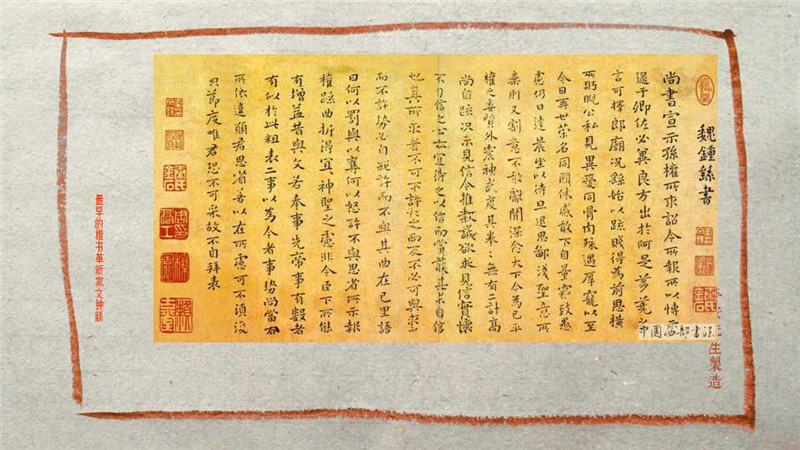 魏鍾繇書
尚書宣示孫權所求詔令所報所以博
逮于卿佐必冀良方出於阿是芻蕘之
言可擇郎廟況繇始以疏賤得為前恩橫
所眄睨公私見異愛同骨肉殊遇厚寵以至
今日再世榮名同國休慼敢不自量竊致愚
慮仍日達晨坐以待旦退思鄙淺聖意所
棄則又割意不敢獻聞深念天下今為已平
權之委質外震神武度其拳々無有二計高
尚自疏況未見信今推款誠欲求見信實懷
不自信之心亦宜待之以信而當護其未自信
也其所求者不可不許許之而反不必可與求之
而不許勢必自絕許而不與其曲在己里語
曰何以罰與以奪何以怒許不與思省所示報
權疏曲折得宜宜神聖之慮非今臣下所能
有增益昔與文若奉事先帝事有數者
有似於此粗表二事以為今者事勢尚當有
所依違願君思省若以在所慮可不須復
只節度唯君恐不可采故不自拜表
中国西部书法
生製造
最早的楷书革新家文钟繇